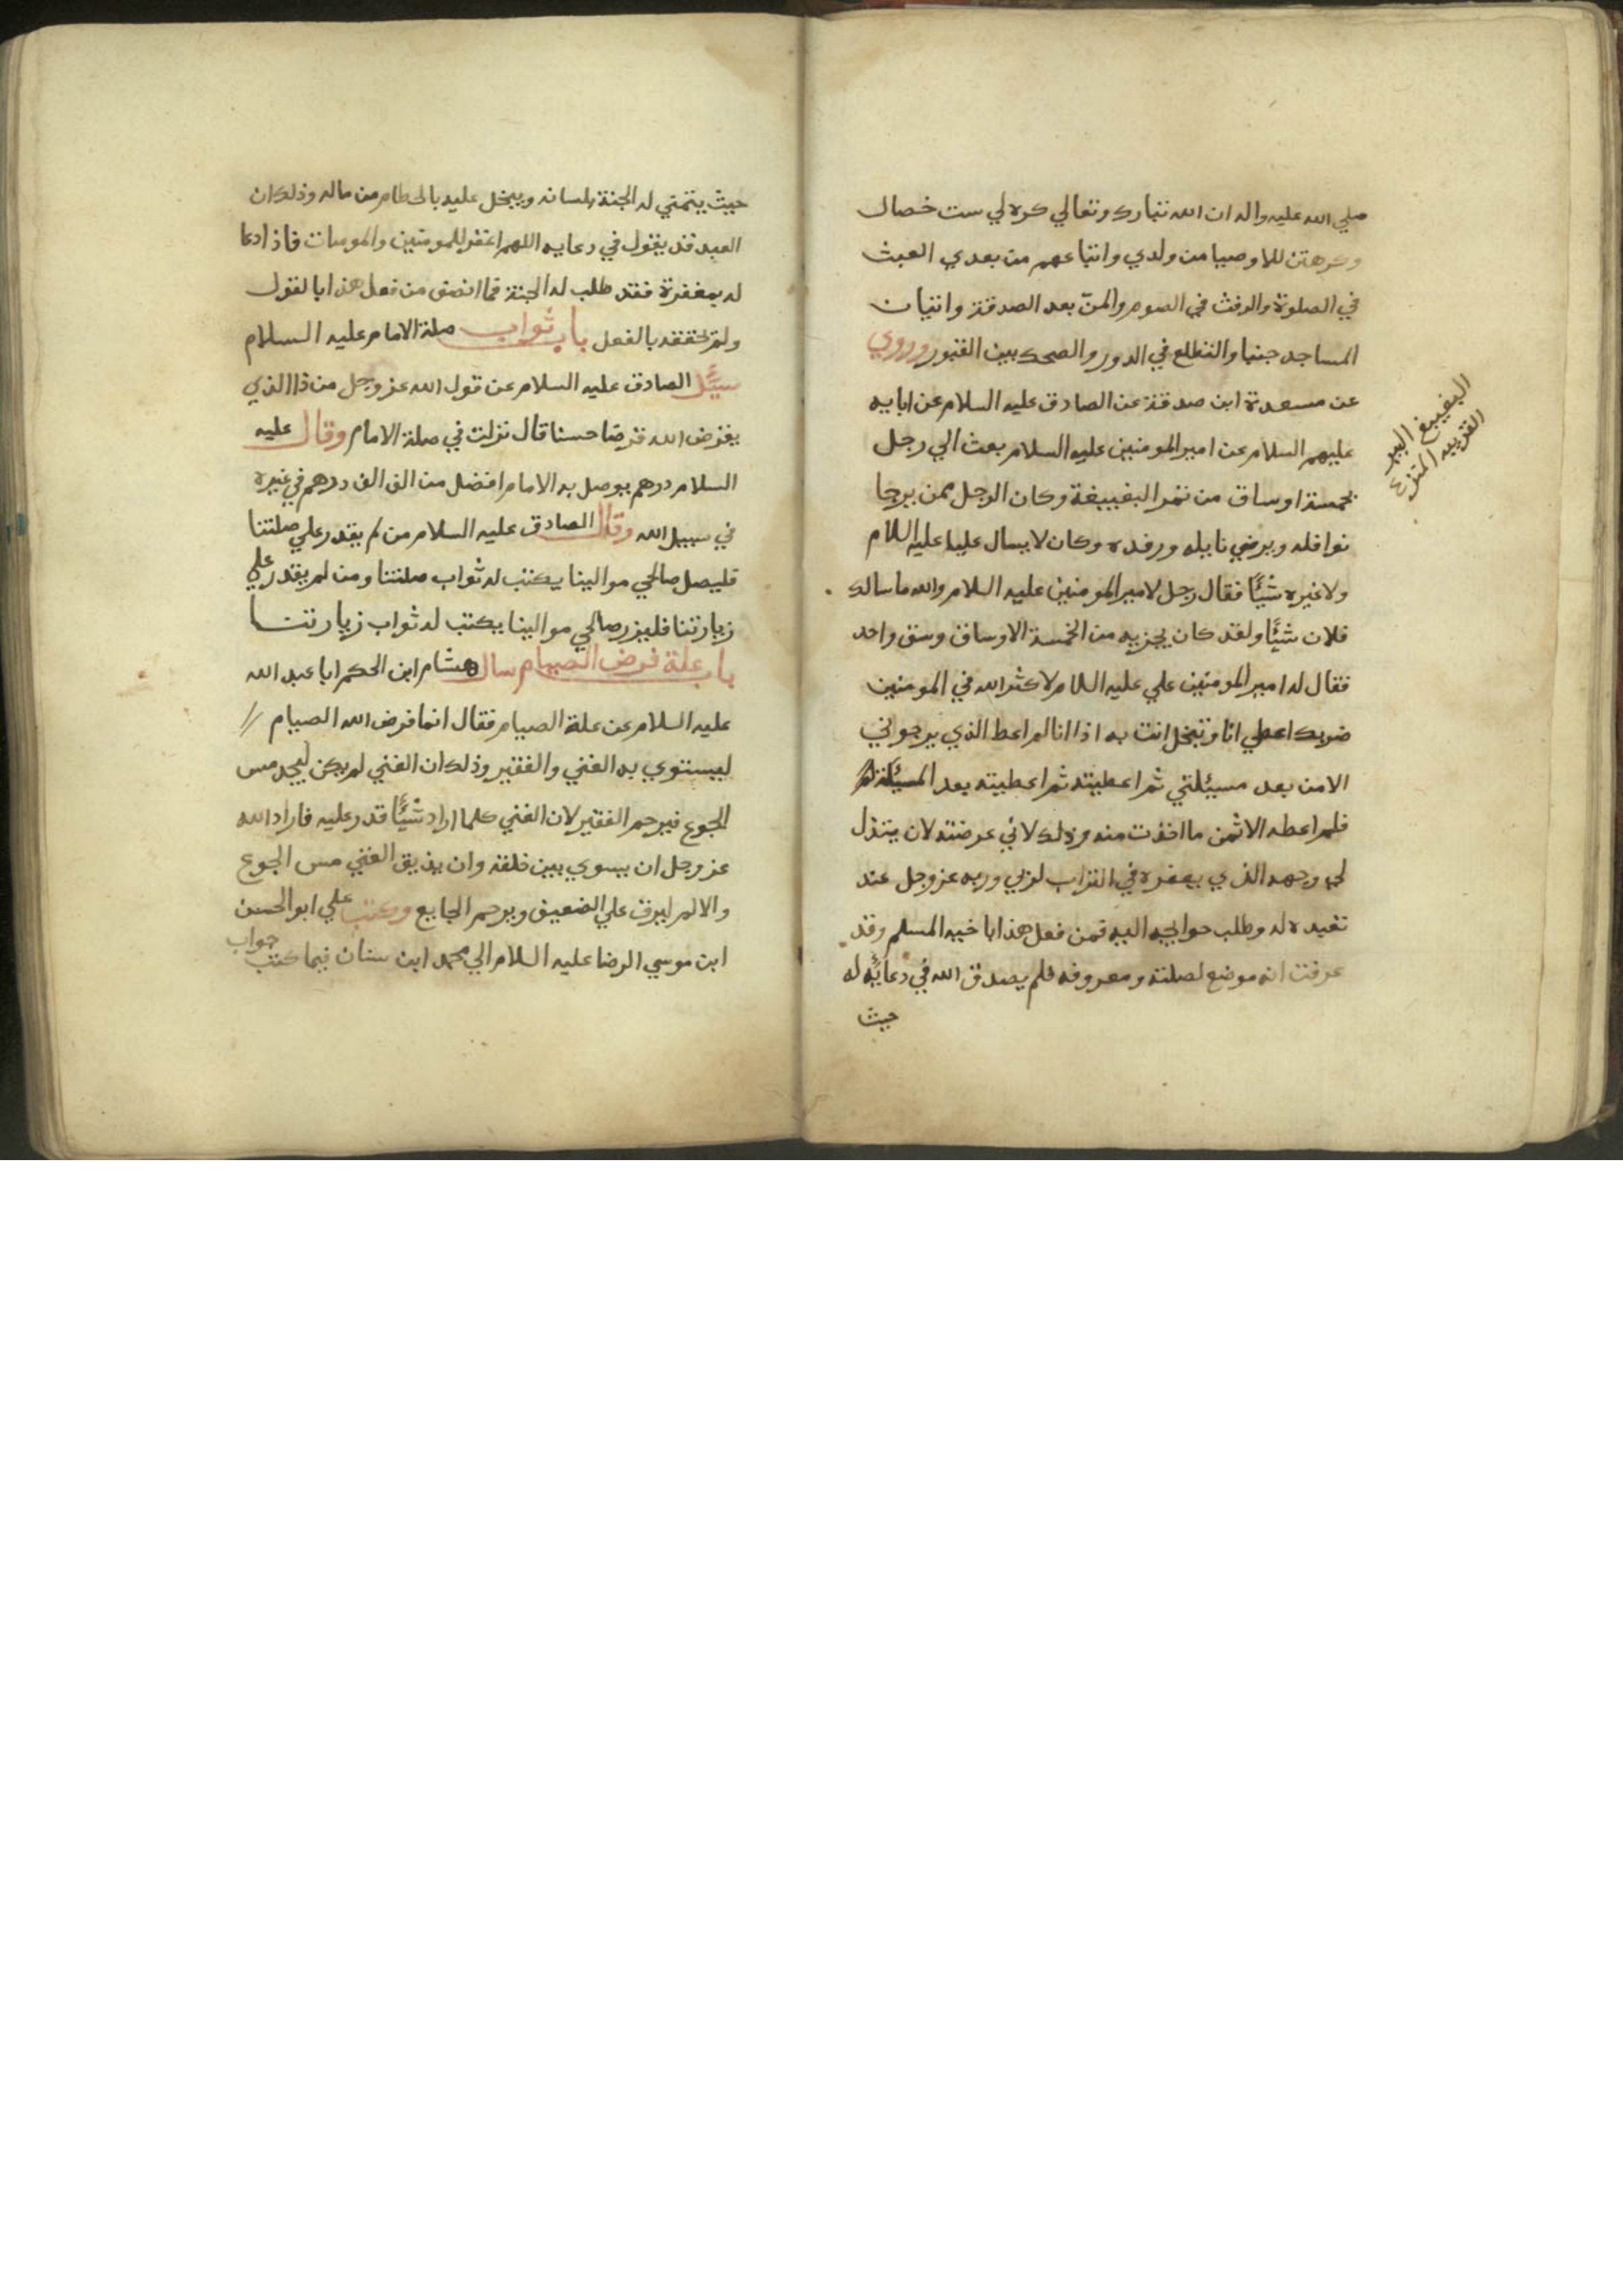 صلي الله عليه واله ان الله تبارك وتعالي كره لي ست خصال
وكرهتن للاوصيا من ولدي واتباعهم من بعدي العبث
في الصلوة والرفث في الصوم والمنّ بعد الصدقة واتيان
المساجد جنبا والتطلع في الدور والضحك بين القبور وروي
عن مسعدة ابن صدقة عن الصادق عليه السلام عن ابايه
عليهم السلام عن امير المومنين عليه السلام بعث الي رجل
بخمسة اوساق من تمر البغيبغة وكان الرجل ممن يرجا
نوافله ويرضي نايله ورفده وكان لا يسال عليا عليه اللام
ولا غيره شئًا فقال رجل لامير المومنين عليه السلام والله ما سالك
فلان شئًا ولقد كان يجزيه من الخمسة الاوساق وسق واحد
فقال له امير المومنين علي عليه اللام لا كثر الله في المومنين
ضربك اعطي انا وتبخل انت به اذا انا لم اعط الذي يرجوني
الا من بعد مسئلتي ثم اعطيته ثم اعطيته بعد المسئلة
فلم اعطه الا ثمن ما اخذت منه وذلك لاني عرضته لان يبذل
لي وجهه الذي يعفره في التراب لربي وربه عز وجل عند
تعبده له وطلب حوايجه اليه فمن فعل هذا باخيه المسلم وقد
عرفت انه موضع لصلته ومعروفه فلم يصدق الله في دعائه له
حيث
البغيبغ البير
القريبه المنزع
حيث يتمني له الجنة بلسانه ويبخل عليه بالحطام من ماله وذلك ان
العبد قد يقول في دعايه اللهم اغفر للمومنين والمومنات فاذا دعا
له بمغفرة فقد طلب له الجنة فما انصف من فعل هذا بالقول
ولم تحققه بالفعل باب ثواب صلة الامام عليه السلام
سئل الصادق عليه السلام عن قول الله عز وجل من ذا الذي
يقرض الله قرضا حسنا قال نزلت في صلة الامام وقال عليه
السلام درهم يوصل به الامام افضل من الف الف درهم في غيره
في سبيل الله وقال الصادق عليه السلام من لم يقدر علي صلتنا
فليصل صالحي موالينا يكتب له ثواب صلتنا ومن لم يقدر علي
زيارتنا فليزر صالحي موالينا يكتب له ثواب زيارتنا
باب علة فرض الصيام سال هشام ابن الحكم ابا عبد الله
عليه السلام عن علة الصيام فقال انما فرض الله الصيام //
ليستوي به الغني والفقير وذلك ان الغني لم يكن ليجد مس
الجوع فيرحم الفقير لان الغني كلما اراد شئًا قدر عليه فاراد الله
عز وجل ان يسوي بين خلقه وان يذيق الغني مس الجوع
والالم ليرق علي الضعيف ويرحم الجايع وكتب علي ابو الحسن
ابن موسي الرضا عليه السلام الي محمد ابن سنان فيما كتب جواب